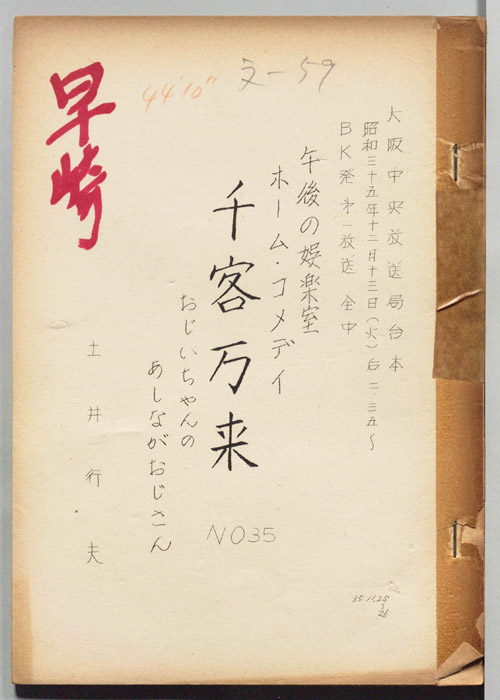 大阪中央放送局台本
昭和三十五年十二月十三日(火)后二・三五～
BK発第一放送全中
午後の娯楽室
ホーム・コメデイ
千客万来
NO35
おじいちゃんの
あしながおじさん
土井行夫
早崎
44'10"
文-59
35.11.25